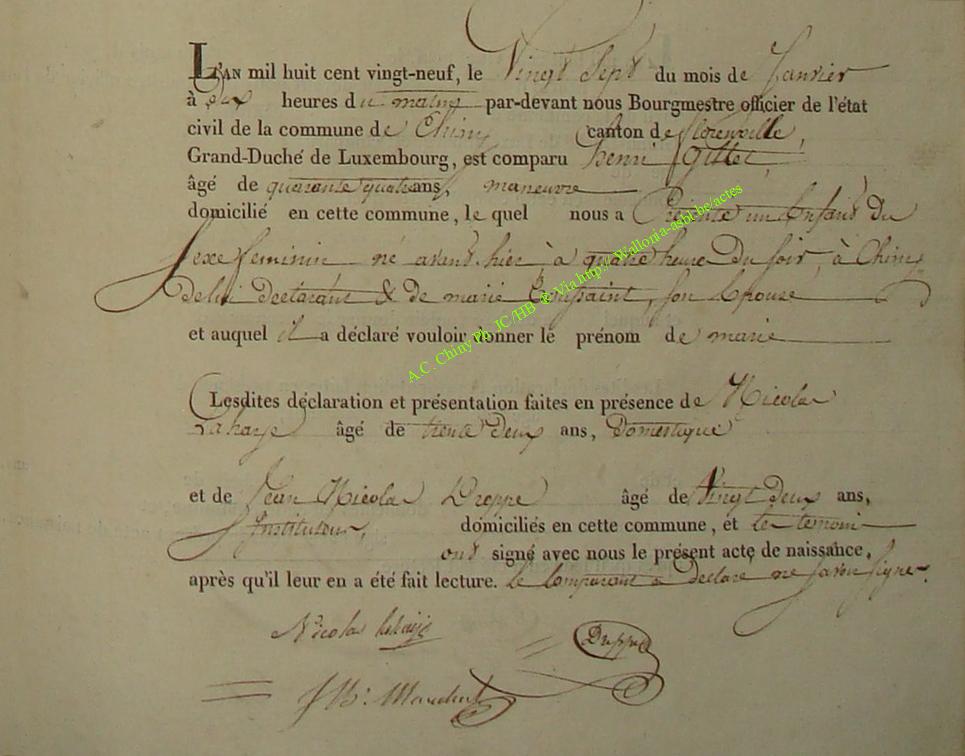 L'AN mil huit cent vingt-neuf, le Vingt Sept du mois de Janvier
à dix heures du matin par-devant nous Bourgmestre officier de l'état
civil de la commune de Chiny canton de florenville,
Grand-Duché de Luxembourg, est comparu henri Gillet,
âgé de quarante quatre ans, maneuvre
domicilié en cette commune, le quel nous a Présenté un Enfant du
Sexe feminin né avant hier à quatre heure du soir, à Chiny
de lui declarant & de marie Toussaint, son Epouse
et auquel il a déclaré vouloir donner le prénom de marie
Lesdites déclaration et présentation faites en présence de Nicolas
Lahaye âgé de trente deux ans, Domestique
et de Jean Nicolas Dreppe âgé de Vingt deux ans,
Instituteur, domiciliés en cette commune, et les temoin
ont signé avec nous le présent acte de naissance,
après qu'il leur en a été fait lecture. le Comparant a declaré ne savoir signer.
Nicolas lahaije
Dreppe
A.C. Chiny Ph. JC/HB & Via http://Wallonia-asbl.be/actes